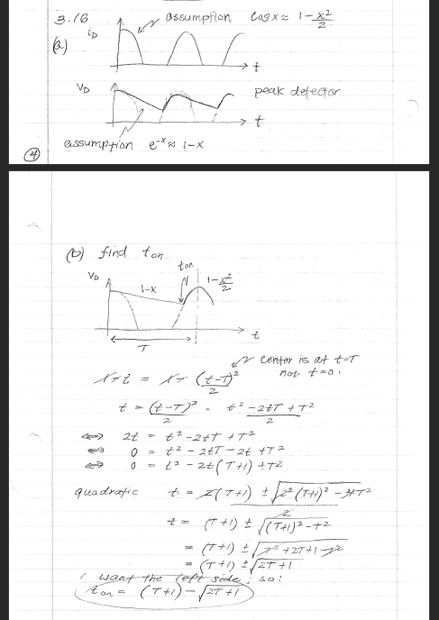 3.16
assumption cos x ≈ 1 - x²/2
(a)
i_D
t
V_D
peak detector
t
assumption e^-x ≈ 1-x
4
(b) find t_on
V_D
1-x
t_on
1 - x²/2
t
T
center is at t=T
not t=0.
1 - t = 1 - (t-T)²/2
t = (t-T)²/2 = t² - 2tT + T²/2
⟺ 2t = t² - 2tT + T²
⟺ 0 = t² - 2tT - 2t + T²
⟺ 0 = t² - 2t(T+1) + T²
quadratic t = 2(T+1) ± √2²(T+1)² - 4T²
2
t = (T+1) ± √(T+1)² - T²
= (T+1) ± √T² + 2T + 1 - T²
= (T+1) ± √2T+1
I want the left side, so:
t_on = (T+1) - √2T+1